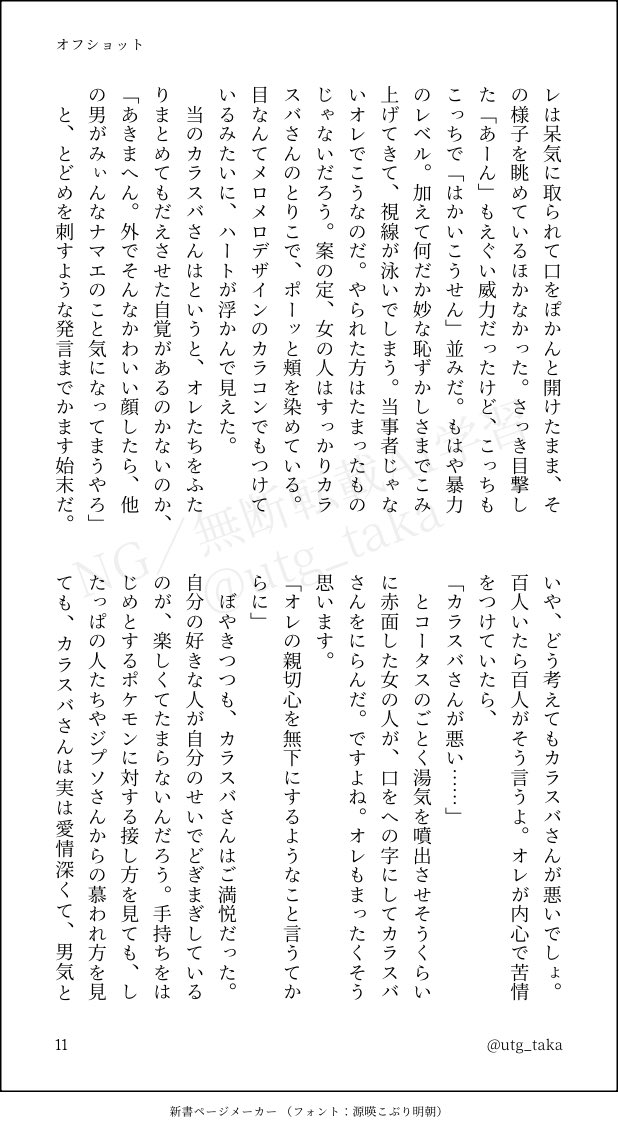 オフショット
レは呆気に取られて口をぽかんと開けたまま、そ
の様子を眺めているほかなかった。さっき目撃し
た「あーん」もえぐい威力だったけど、こっちも
こっちで「はかいこうせん」並みだ。もはや暴力
のレベル。加えて何だか妙な恥ずかしさまでこみ
上げてきて、視線が泳いでしまう。当事者じゃな
いオレでこうなのだ。やられた方はたまったもの
じゃないだろう。案の定、女の人はすっかりカラ
スバさんのとりこで、ポーッと頬を染めている。
目なんてメロメロデザインのカラコンでもつけて
いるみたいに、ハートが浮かんで見えた。
当のカラスバさんはというと、オレたちをふた
りまとめてもだえさせた自覚があるのかないのか、
「あきまへん。外でそんなかわいい顔したら、他
の男がみぃんなナマエのこと気になってまうやろ」
と、とどめを刺すような発言までかます始末だ。
いや、どう考えてもカラスバさんが悪いでしょ。
百人いたら百人がそう言うよ。オレが内心で苦情
をつけていたら、
「カラスバさんが悪い……」
とコータスのごとく湯気を噴出させそうくらい
に赤面した女の人が、口をへの字にしてカラスバ
さんをにらんだ。ですよね。オレもまったくそう
思います。
「オレの親切心を無下にするようなこと言うてか
らに」
ぼやきつつも、カラスバさんはご満悦だった。
自分の好きな人が自分のせいでどぎまぎしている
のが、楽しくてたまらないんだろう。手持ちをは
じめとするポケモンに対する接し方を見ても、し
たっぱの人たちやジプソさんからの慕われ方を見
ても、カラスバさんは実は愛情深くて、男気と
NG／無断転載AI学習
@utg_taka
11
@utg_taka
新書ページメーカー（フォント：源暎こぶり明朝）